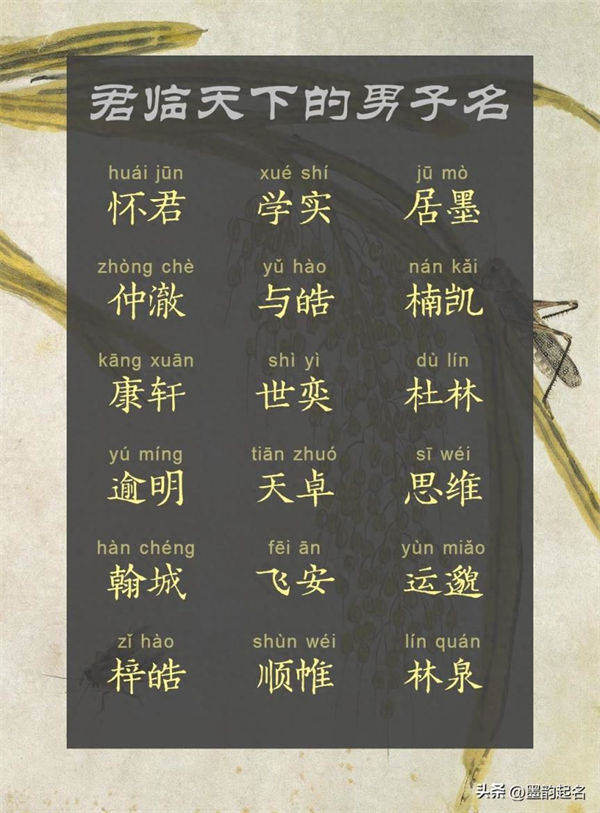 君临天下的男子名
huái jūn xué shí jū mò
怀君 学实 居墨
zhòng chè yǔ hào nán kǎi
仲澈 与皓 楠凯
kāng xuān shì yì dù lín
康轩 世奕 杜林
yú míng tiān zhuó sī wéi
逾明 天卓 思维
hàn chéng fēi ān yùn miǎo
翰城 飞安 运邈
zǐ hào shùn wéi lín quán
梓皓 顺帷 林泉
头条 @墨韵起名